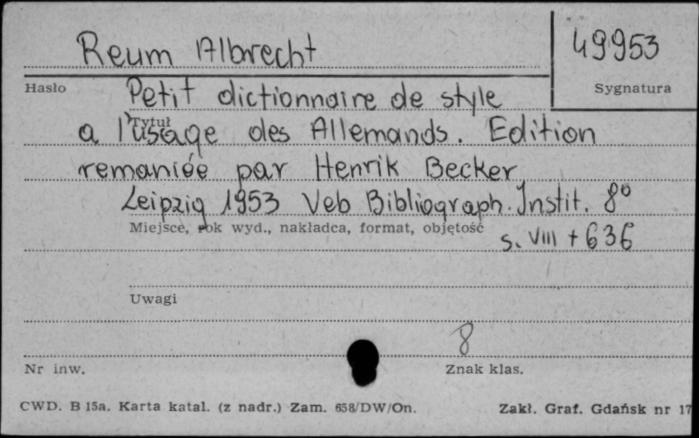 Reum Albrecht
49953
Hasło
Sygnatura
Petit dictionnaire de style
Tytuł
a l'usage des Allemands. Edition
remaniée par Henrik Becker
Leipzig 1953 Veb Bibliograph. Instit. 8°
Miejsce, rok wyd., nakładca, format, objętość
s. VIII + 636
Uwagi
8
Nr inw.
Znak klas.
CWD. B 15a. Karta katal. (z nadr.) Zam. 658/DW/On.
Zakł. Graf. Gdańsk nr 17